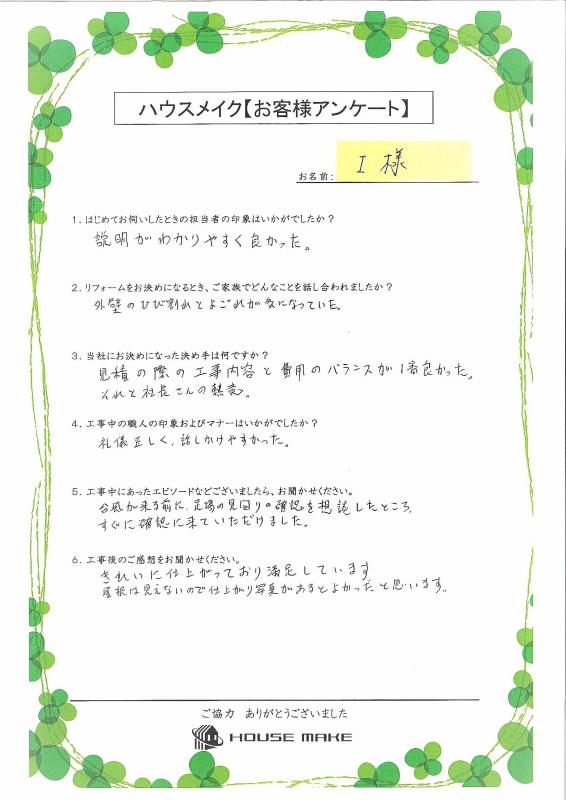 ハウスメイク【お客様アンケート】
お名前: I 様
1. はじめてお伺いしたときの担当者の印象はいかがでしたか？
説明がわかりやすく良かった。
2. リフォームをお決めになるとき、ご家族でどんなことを話し合われましたか？
外壁のひび割れとよごれが気になっていた。
3. 当社にお決めになった決め手は何ですか？
見積の際の工事内容と費用のバランスが1番良かった。
それと社長さんの熱意。
4. 工事中の職人の印象およびマナーはいかがでしたか？
礼儀正しく、話しかけやすかった。
5. 工事中にあったエピソードなどございましたら、お聞かせください。
台風が来る前に、足場の見回りの確認を相談したところ、
すぐに確認に来ていただけました。
6. 工事後のご感想をお聞かせください。
きれいに仕上がっており満足しています
屋根は見えないので仕上がり写真があるとよかったと思います。
ご協力 ありがとうございました
HOUSE MAKE